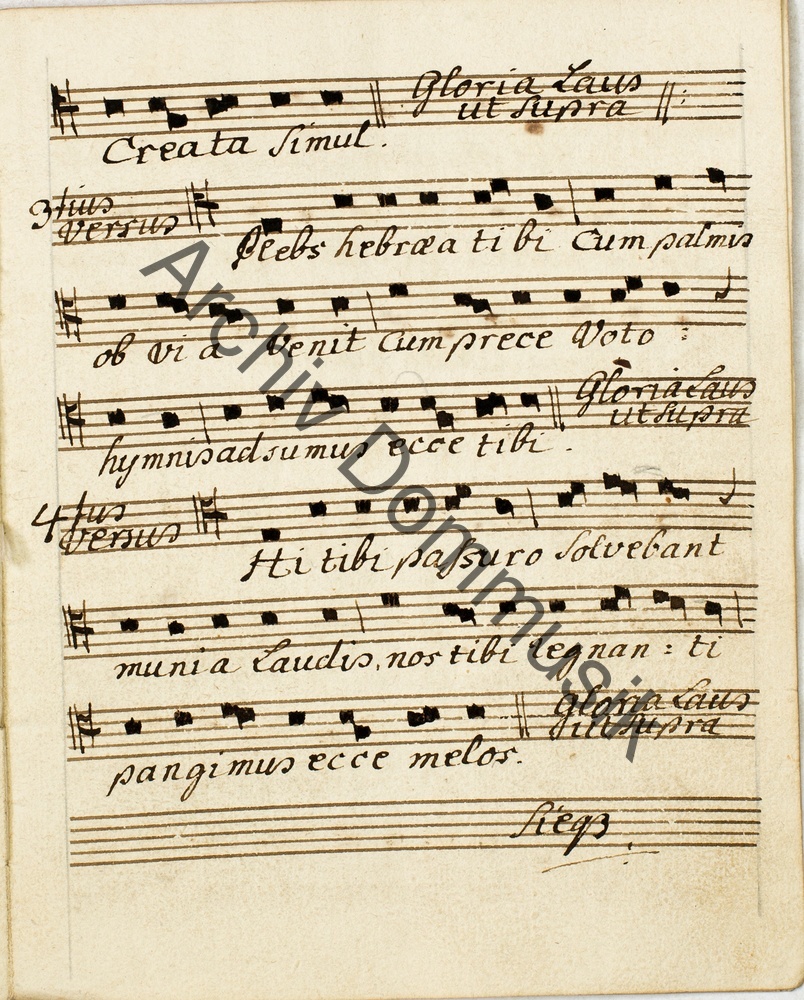 Gloria Laus
ut Supra
Creata Simul.
3tius
versus
Plebs hebræa tibi Cum palmis
ob via Venit Cum prece Voto :
Gloria Laus
ut Supra
hymnis adsumus ecce tibi.
4tus
versus
Hi tibi paſsuro Solvebant
munia Laudis, nos tibi regnan : ti
Gloria Laus
ut Supra
pangimus ecce melos.
Archiv Dommusik